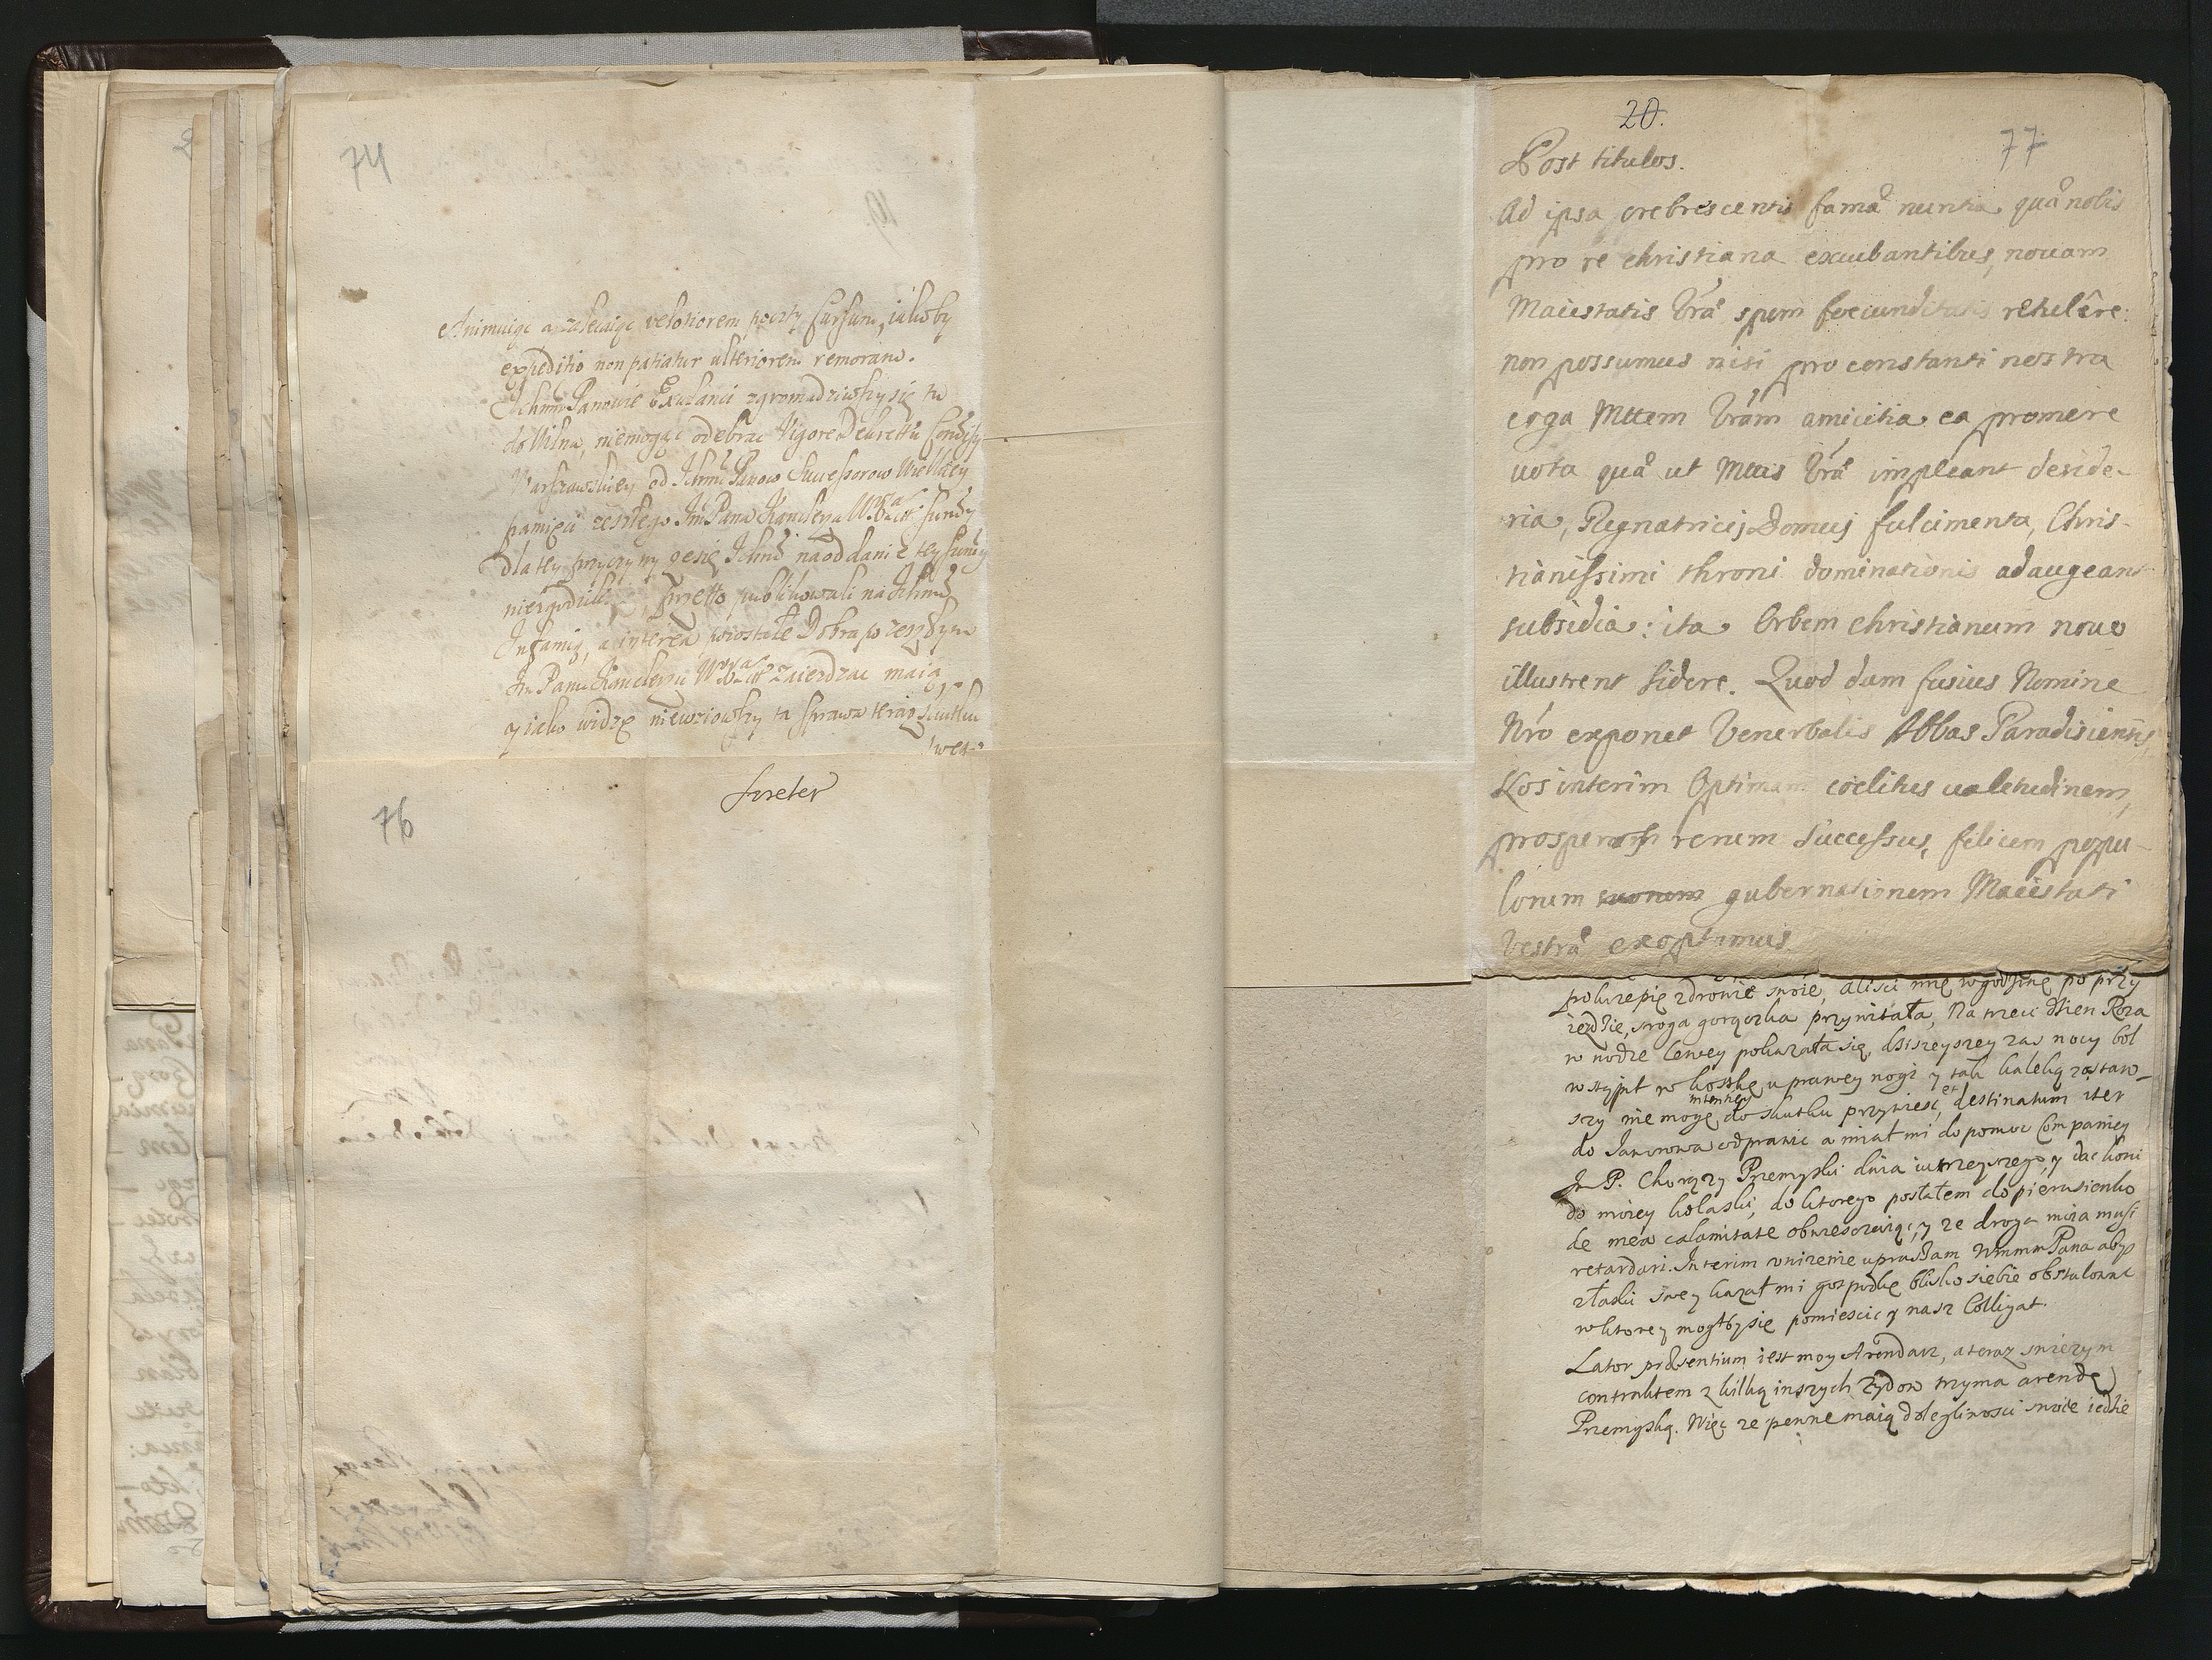 74
Animuiąc a zalecaiąc velotiorem poczty cursum, iakoby
expeditio non patiatur ulteriorem remoram.
Ichmć Panowie Exulanci zgromadziwszy się tu
do Wilna, niemogąc odebrac Vigore Dekrettu
Warszawskiey od Ichmć Panow Successorow Wielkiey
pamięci zeszłego Im Pana Kanclerza
dla tey przyczyny ze się Ichmć na oddanie tey
, przetto publikowali na Ichmć
Infamię, a interea pozostałe Dobra po zeszłym
Im Panu Kanclerzu zaiezdzac maią
y iako widzę niewziowszy ta sprawa teraz skutku
76
20.
77
Post titulos.
Ad ipsa crebrescentis famæ nuntia quæ nobis
pro re christiana excubantibus, novam
Maiestatis Vræ spem foecunditatis retulêre:
non possumus nisi pro constanti nostra
erga Mttem Vram amicitia ea promere
vota quæ ut Mttis Vræ impleant deside-
ria, Regnatricis Domus fulcimenta, Chris-
tianissimi throni dominationis adaugeant
subsidia: ita Orbem christianum novo
illustrent sidere. Quod dum fusius Nomine
Nro exponet Venerbalis Abbas Paradisiensis,
Nos interim Optimam coelitus valetudinem,
prosperos rerum Successus, felicem popu-
lorum suorum gubernationem Maiestati
Vestræ exoptimus
pokrzepię zdrowie swoie, alisci mię w godzinę po przy
iezdzie, sroga gorączka przywitała, Na trzeci dzien Roza
w nodze lewey pokazała się, dzisieyszey zas nocy bol
wstąpił w kostkę u prawey nogi y tak kaleką zostaw-
szy nie mogę intentiey do skutku przywiesc, et destinatum iter
do Jaworowa odprawic a miał mi do pomoc Companiey
Im P. Chorązy Przemyski dnia iutrzeyszego, y dac koni
do moiey kolaski, do ktorego posłałem dopierusienko
de mea calamitate obwiesczaiąc, y ze droga moia musi
retardari. Interim unizenie upraszam Wmmm Pana aby
z łaski swey kazał mi gospodkę blisko siebie obstalowac
w ktorey mogłby się pomiescic y nasz Colligat.
Lator præsentium iest moy Arendarz, a teraz swiezym
contraktem z kilką inszych Zydow trzyma arendę
Przemyską. Więc ze pewne maią dolegliwosci swoie iedzie